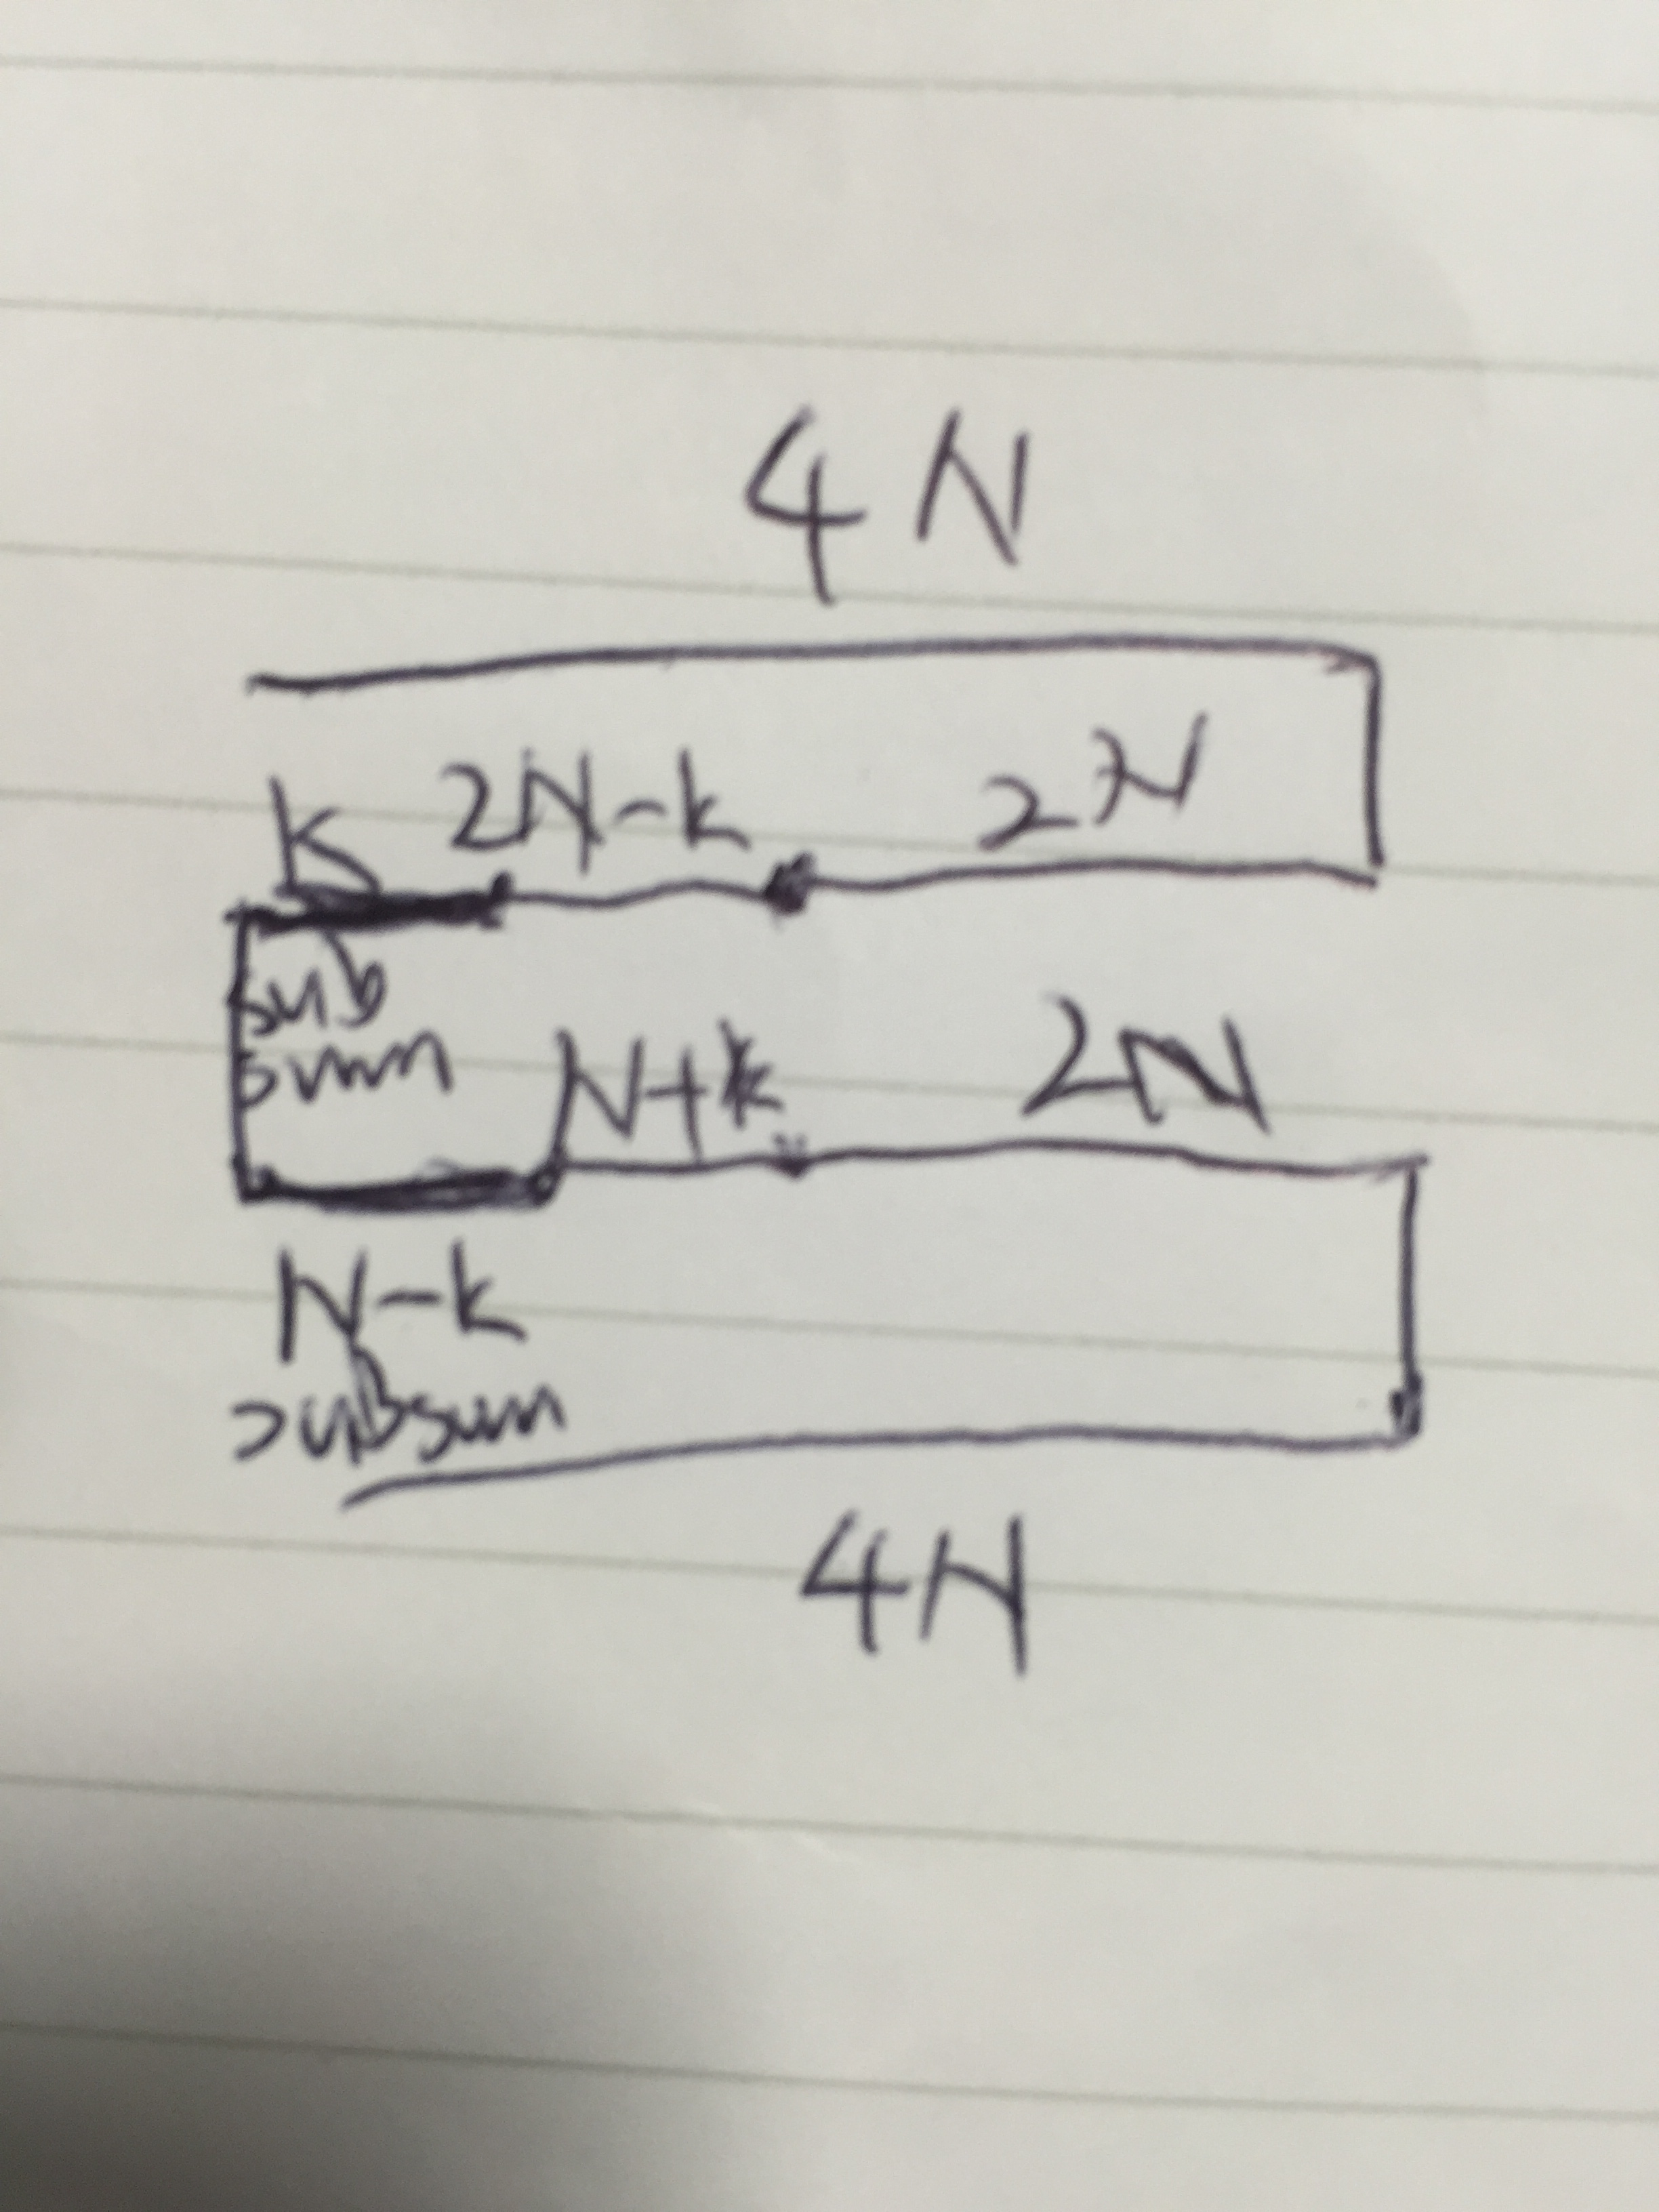 4N
K 2N-k 2N
sub
sum
N+k 2N
N-k
subsum
4N